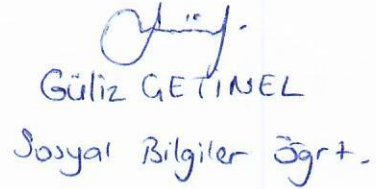 Güliz GETİNEL
Sosyal Bilgiler Öğrt.